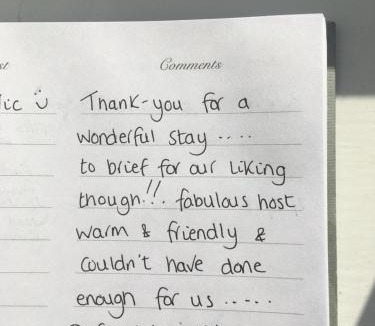 st Comments
ic Thank-you for a
wonderful stay ....
to brief for our liking
though!!. fabulous host
warm & friendly &
couldn't have done
enough for us .....